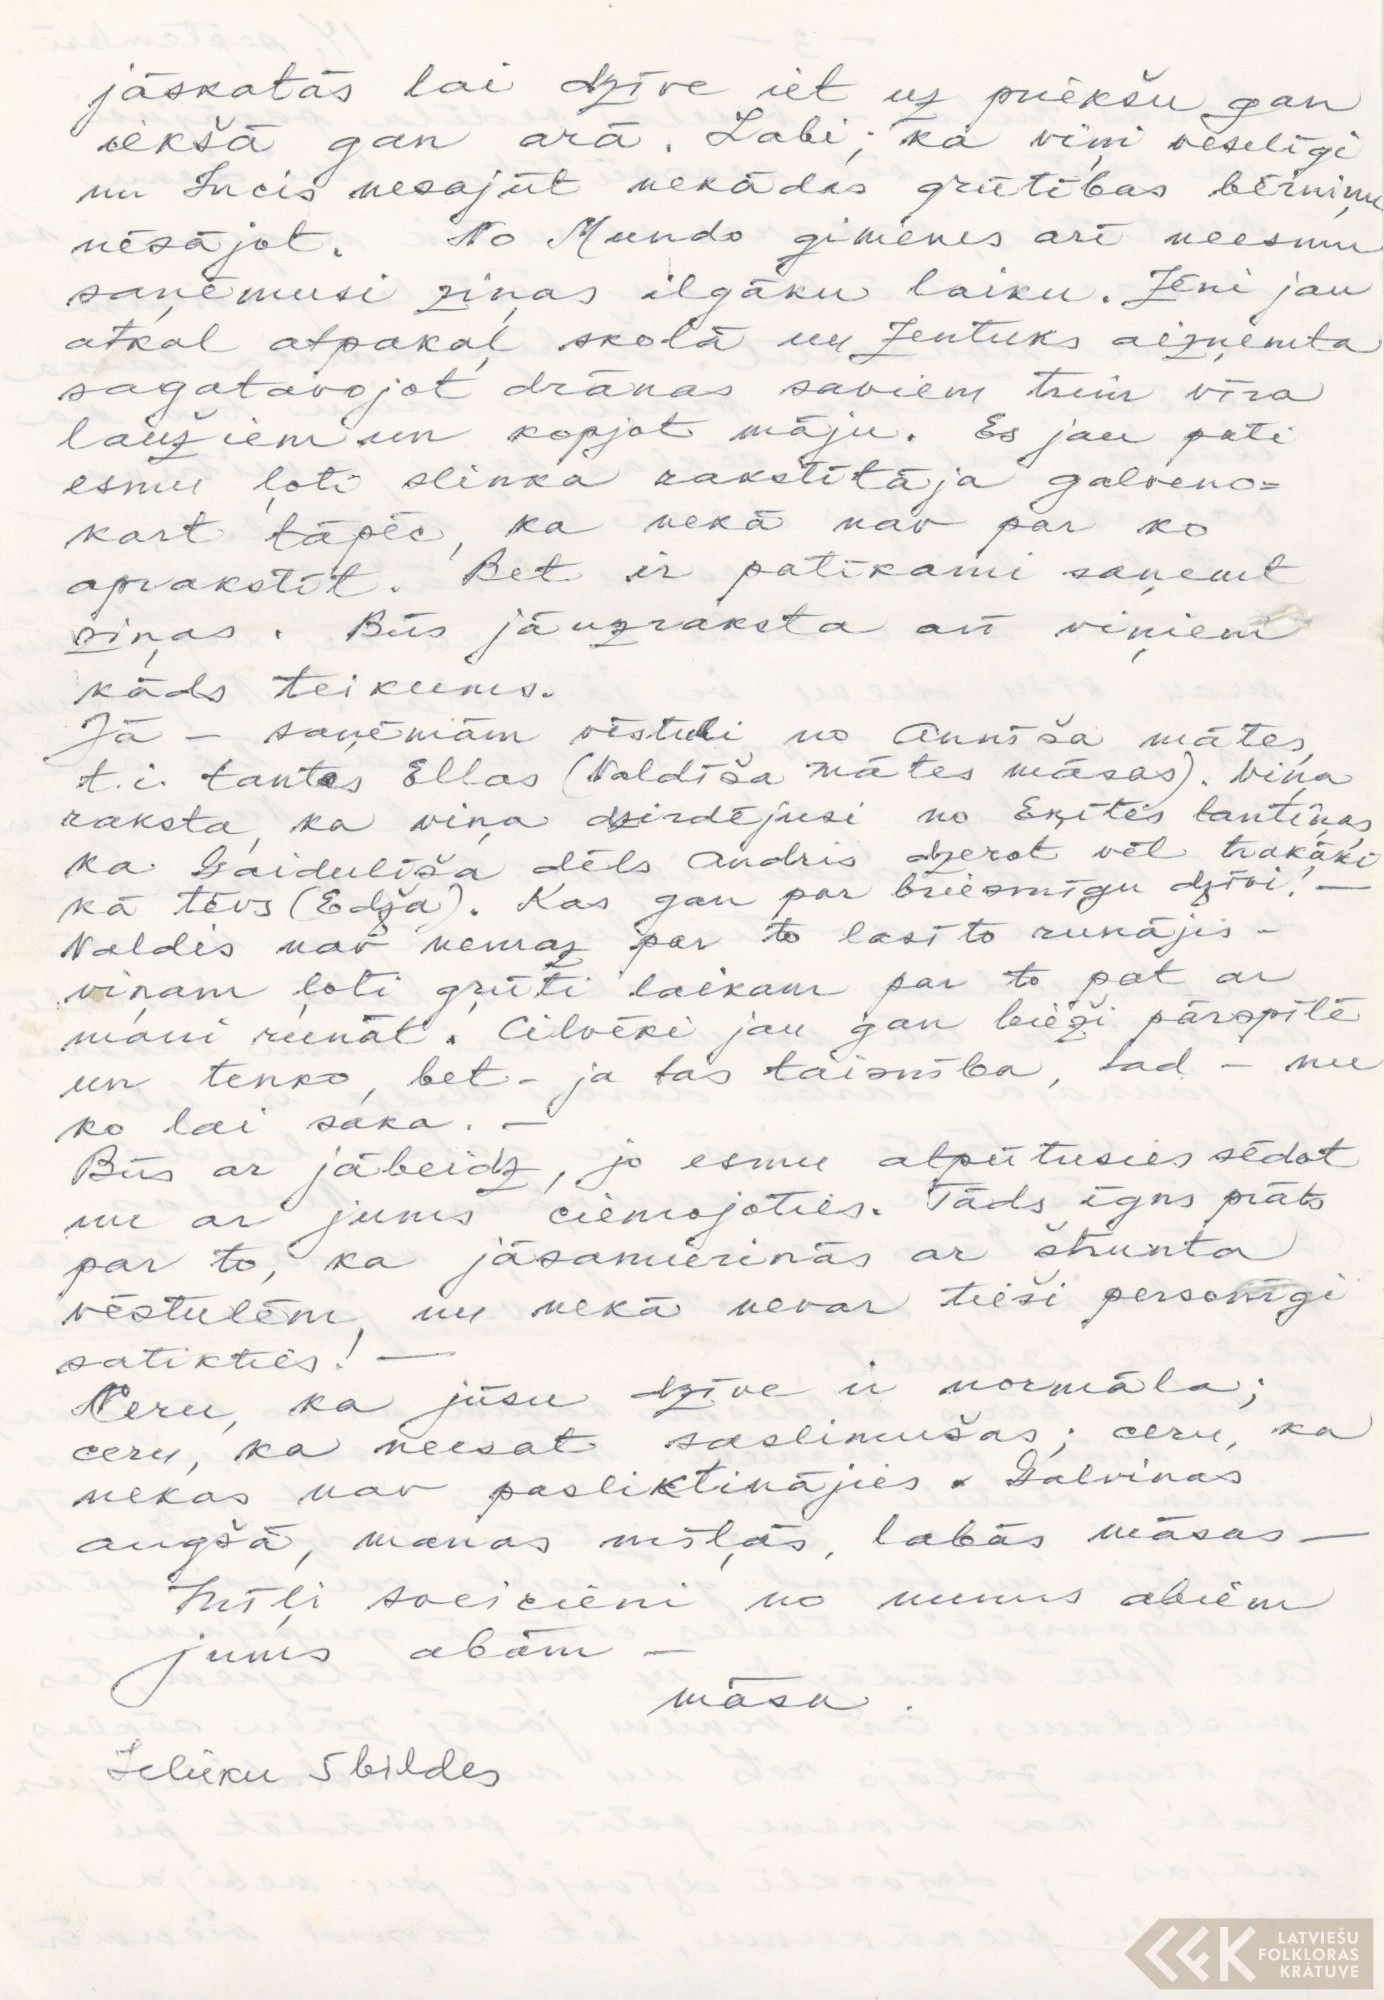 jāskatās lai dzīve iet uz priekšu gan
iekšā gan arā. Labi, ka viņi veselīgi
un Incis nesajūt nekādas grūtības bērniņu
nēsājot. No Mundo ģimenes arī neesmu
saņēmusi ziņas ilgāku laiku. Zēni jau
atkal atpakaļ skolā un Zentuks aizņemta
sagatavojot drānas saviem trim vīra
ļaužiem un kopjot māju. Es jau pati
esmu ļoti slinka rakstītāja galveno=
kart tāpēc, ka nekā nav par ko
aprakstīt. Bet ir patīkami saņemt
ziņas. Būs jāuzraksta arī viņiem
kāds teikums.
Jā – saņēmām vēstuli no Annīša mātes,
t.i. tantes Ellas (Valdīša mātes māsas). Viņa
raksta, ka viņa dzirdējusi no Eņītes tantiņas,
ka Gaidulīša dēls Andris dzerot vēl trakāki
kā tēvs (Edža). Kas gan par briesmīgu dzīvi! –
Valdis nav nemaz par to lasīto runājis –
viņam ļoti grūti laikam par to pat ar
mani runāt. Cilvēki jau gan bieži pārspīlē
un tenko, bet – ja tas taisnība, tad – nu
ko lai saka. –
Būs ar jābeidz, jo esmu atpūtusies sēdot
un ar jums ciemojoties. Tāds īgns prāts
par to, ka jāsamierinās ar štrunta
vēstulēm, un nekā nevar tieši personīgi
satikties! –
Ceru, ka jūsu dzīve ir normāla;
ceru, ka neesat saslimušas; ceru, ka
nekas nav pasliktinājies. Galviņas
augšā, manas mīļās, labās māsas –
Mīļi sveicieni no mums abiem
jums abām –
māsa.
Ielieku 5 bildes
LATVIEŠU
FOLKLORAS
KRĀTUVE